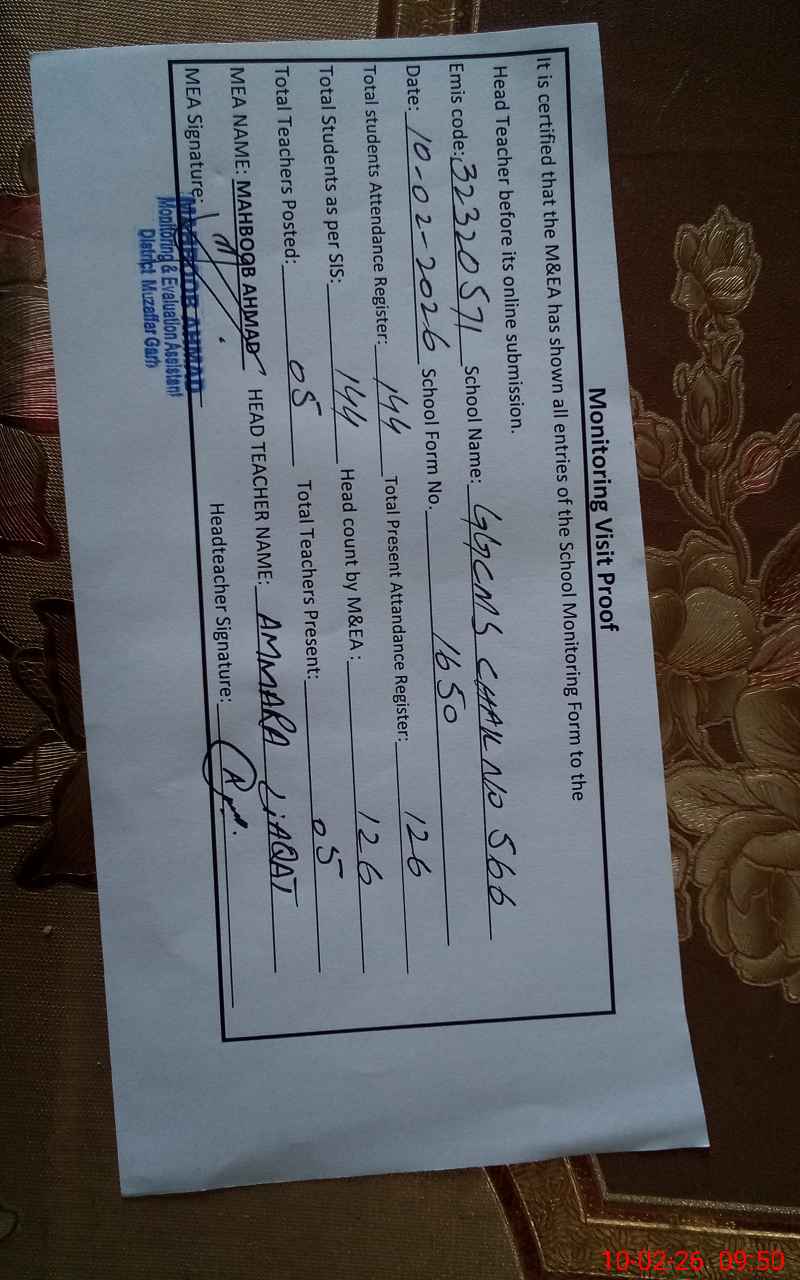 Monitoring Visit Proof
It is certified that the M&EA has shown all entries of the School Monitoring Form to the
Head Teacher before its online submission.
Emis code: 32320571 School Name: GGCMS CHAK NO 566
Date: 10-02-2026 School Form No. 1650
Total students Attendance Register: 144 Total Present Attandance Register: 126
Total Students as per SIS: 144 Head count by M&EA: 126
Total Teachers Posted: 05 Total Teachers Present: 05
MEA NAME: MAHBOOB AHMAD HEAD TEACHER NAME: AMMARA LIAQAT
MEA Signature: Headteacher Signature:
MAHBOOB AHMAD
Monitoring & Evaluation Assistant
District Muzaffar Garh
10-02-26 09:50